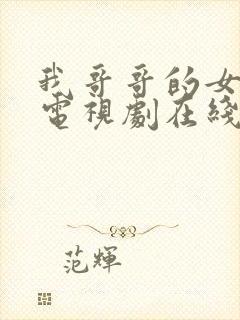 我哥哥的女
電視劇在綫
范輝